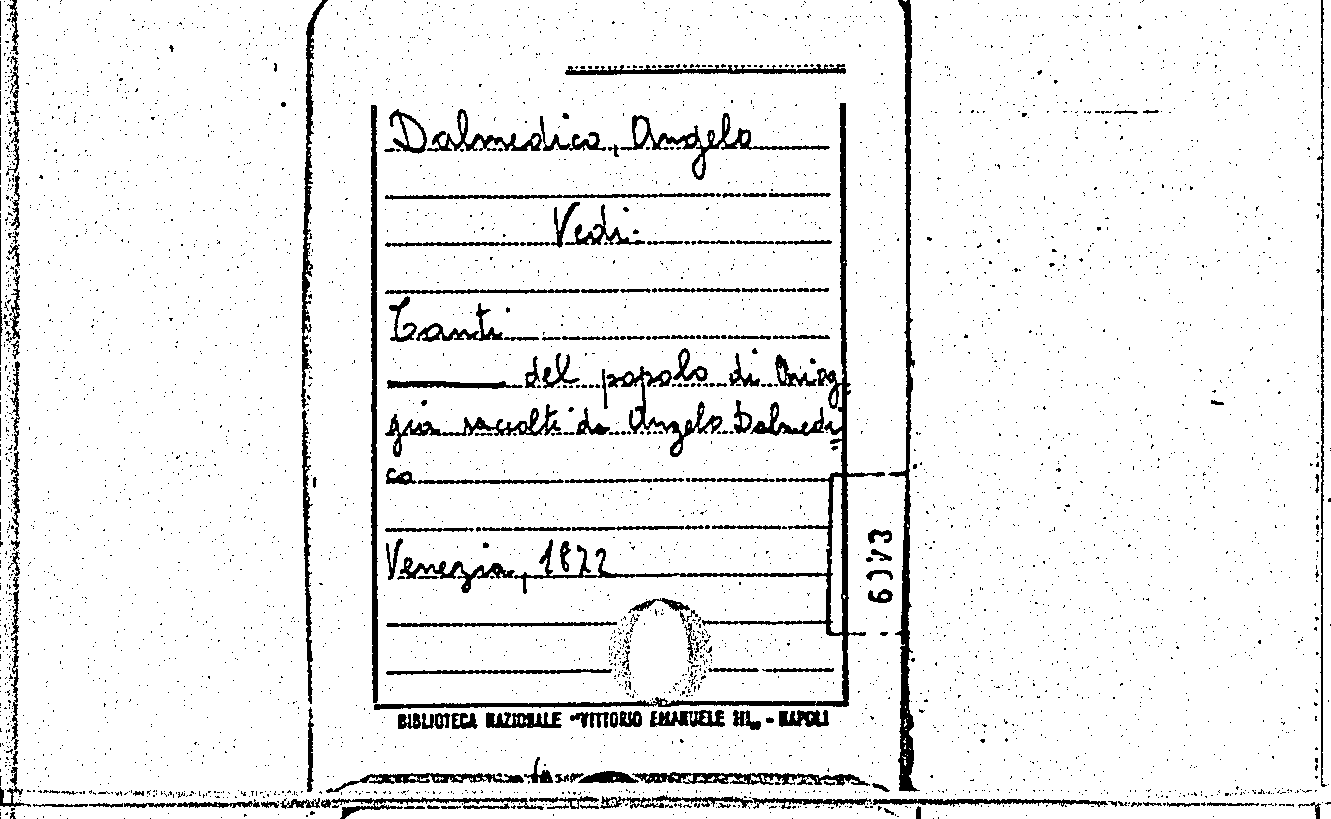 Dalmedico, Angelo
Vedi:
Canti
del popolo di Chiog
gia raccolti da Angelo Dalmedi
co
Venezia, 1872
BIBLIOTECA NAZIONALE "VITTORIO EMANUELE III„ - NAPOLI